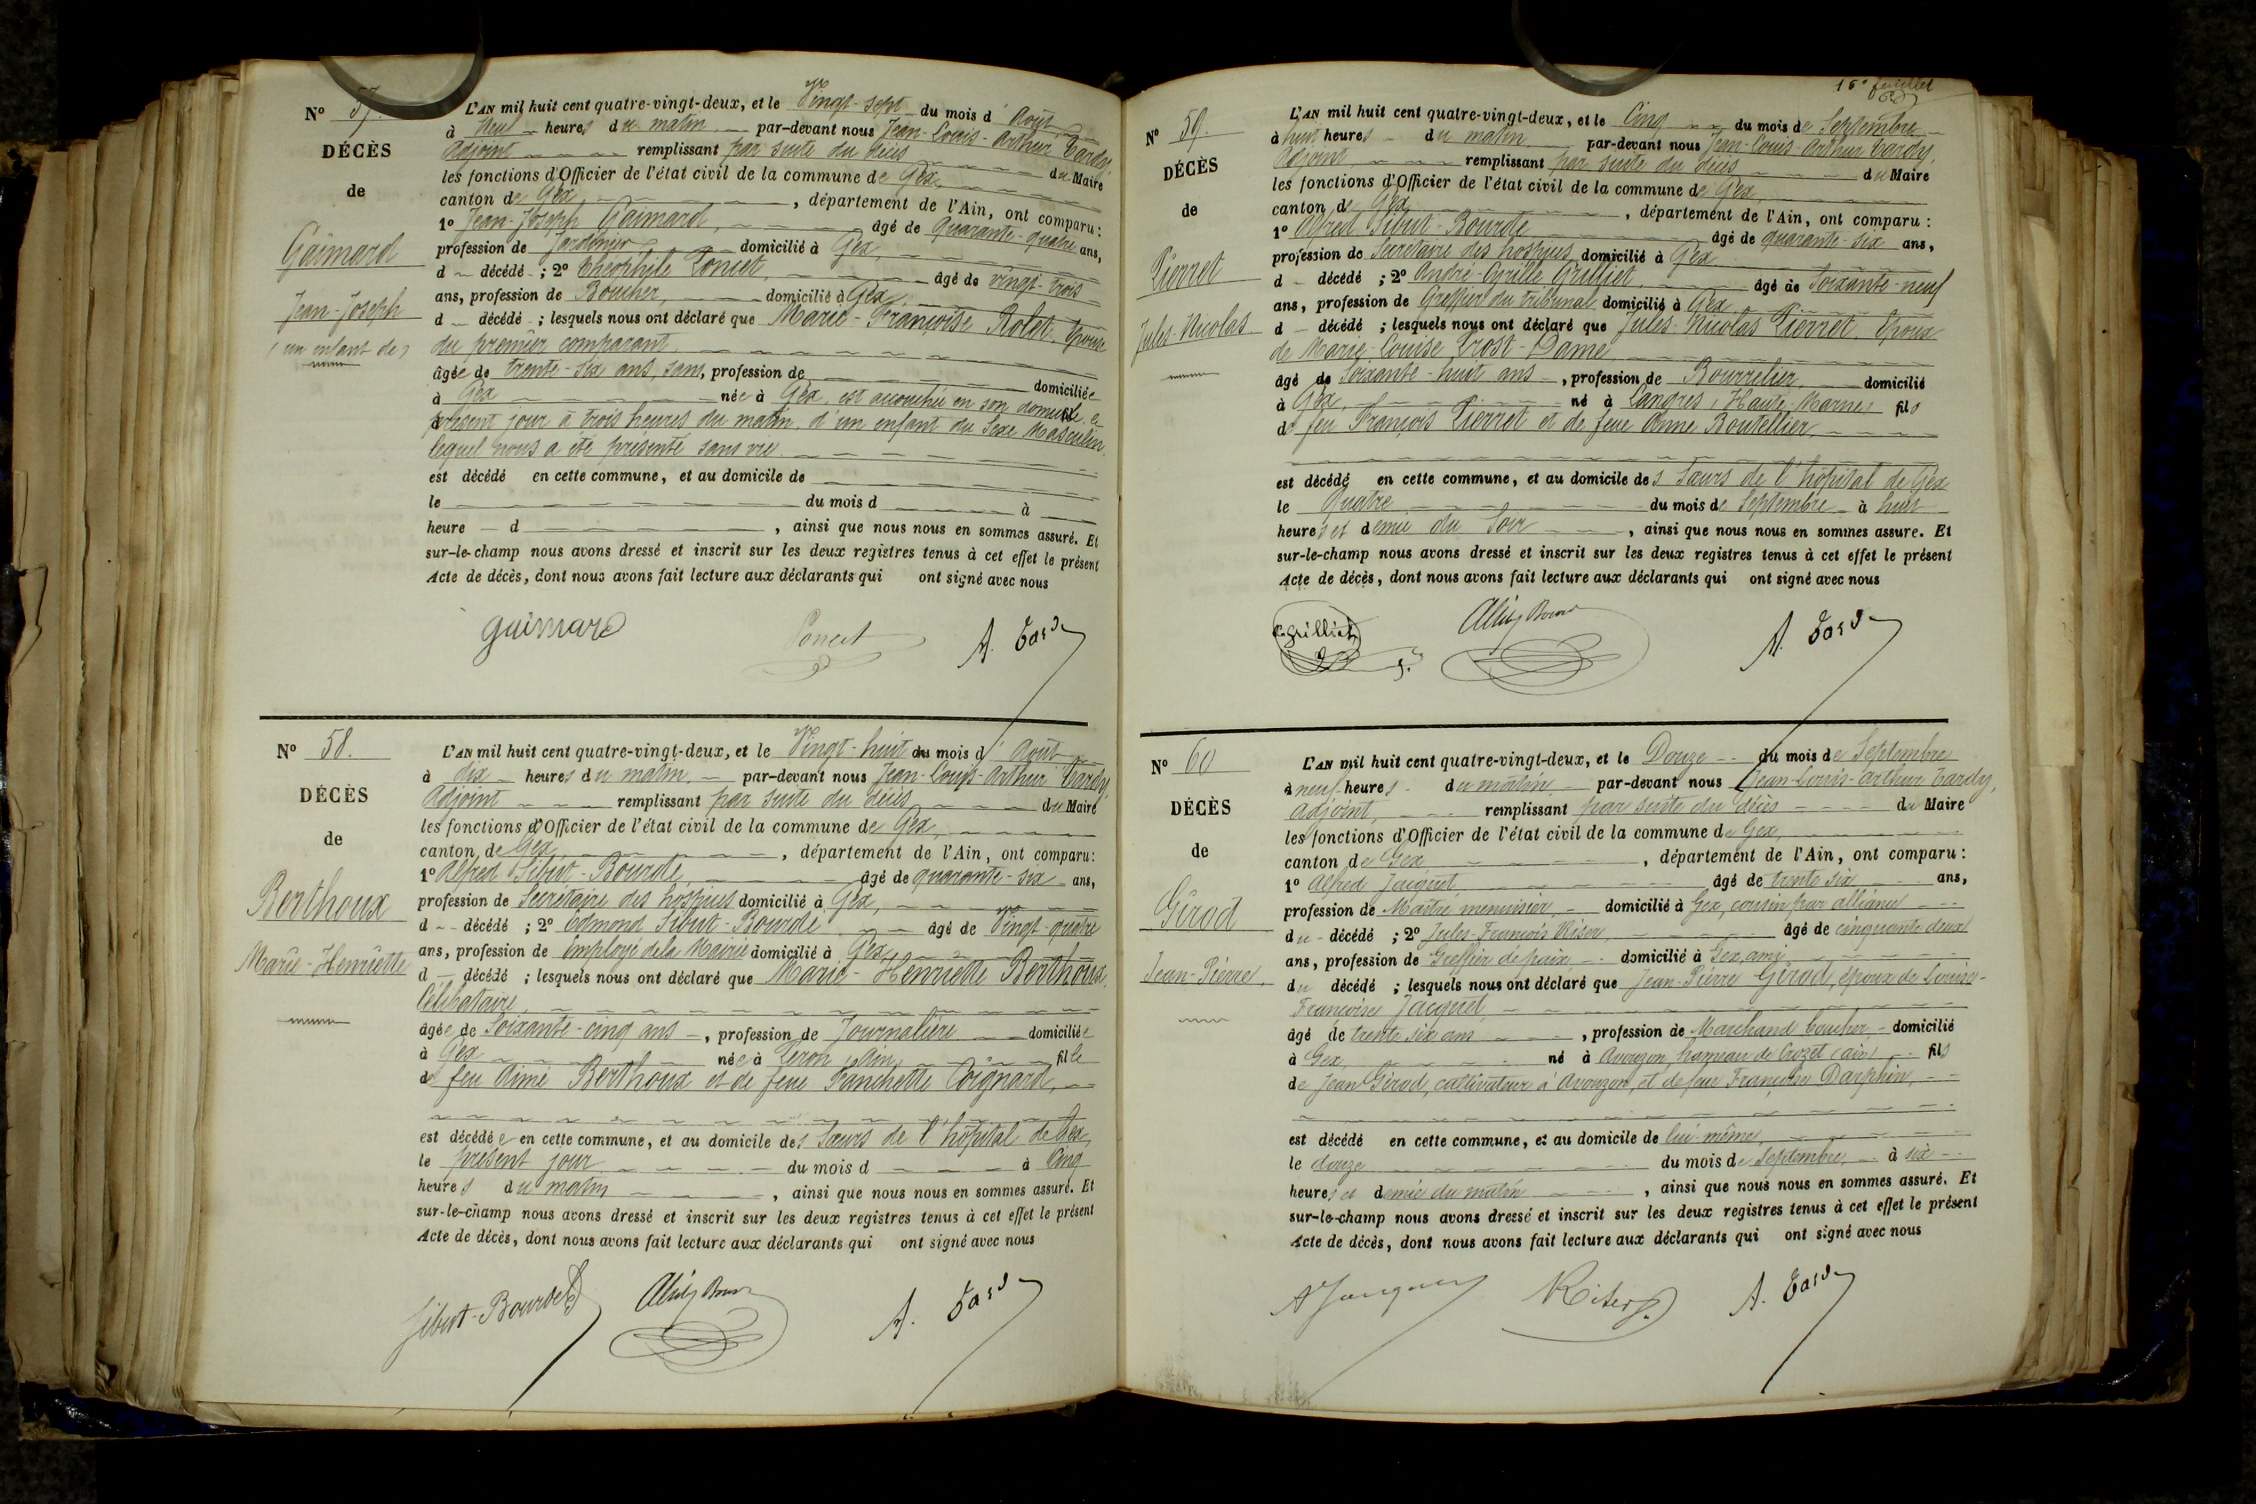 N° 57.
DÉCÈS
de
Gaimard
Jean-Joseph
(un enfant de)
L'AN mil huit cent quatre-vingt-deux, et le Vingt-sept du mois d'Août
à neuf heures du matin, par-devant nous Jean-Louis-Arthur Tardy,
Adjoint remplissant par suite du décès du Maire
les fonctions d'Officier de l'état civil de la commune de Gex,
canton de Gex, département de l'Ain, ont comparu :
1° Jean-Joseph Gaimard, âgé de Quarante-quatre ans,
profession de Jardinier domicilié à Gex,
d décédé ; 2° Théophile Poncet, âgé de vingt-trois
ans, profession de Boucher, domicilié à Gex,
d décédé ; lesquels nous ont déclaré que Marie-Françoise Rolet, Epouse
du premier comparant
âgée de trente-six ans, sans, profession de domiciliée
à Gex née à Gex, est accouchée en son domicile ce
présent jour à trois heures du matin, d'un enfant du sexe Masculin,
lequel nous a été présenté sans vie.
est décédé en cette commune, et au domicile de
le du mois d à
heure d , ainsi que nous nous en sommes assuré. Et
sur-le-champ nous avons dressé et inscrit sur les deux registres tenus à cet effet le présent
Acte de décès, dont nous avons fait lecture aux déclarants qui ont signé avec nous
gaimard Poncet A. Tardy
N° 58.
DÉCÈS
de
Berthoux
Marie-Henriette
L'AN mil huit cent quatre-vingt-deux, et le Vingt-huit du mois d'Août
à dix heures du matin, par-devant nous Jean-Louis-Arthur Tardy,
Adjoint remplissant par suite du décès du Maire
les fonctions d'Officier de l'état civil de la commune de Gex,
canton de Gex, département de l'Ain, ont comparu :
1° Alfred Sibut-Bourde, âgé de quarante-six ans,
profession de Secrétaire des hospices domicilié à Gex,
d décédé ; 2° Edmond Sibut-Bourde âgé de Vingt-quatre
ans, profession de Employé de la Mairie domicilié à Gex,
d décédé ; lesquels nous ont déclaré que Marie-Henriette Berthoux,
Célibataire
âgée de Soixante-cinq ans, profession de Journalière domiciliée
à Gex née à Péron (Ain) fille
de feu Aimé Berthoux et de feue Fanchette Coignard,
est décédée en cette commune, et au domicile des Sœurs de l'hôpital de Gex,
le présent jour du mois d à Cinq
heures du matin , ainsi que nous nous en sommes assuré. Et
sur-le-champ nous avons dressé et inscrit sur les deux registres tenus à cet effet le présent
Acte de décès, dont nous avons fait lecture aux déclarants qui ont signé avec nous
Sibut-Bourde A. Tardy
16e feuillet
N° 59.
DÉCÈS
de
Pierret
Jules-Nicolas
L'AN mil huit cent quatre-vingt-deux, et le Cinq du mois de Septembre
à huit heures du matin par-devant nous Jean-Louis-Arthur Tardy,
Adjoint remplissant par suite du décès du Maire
les fonctions d'Officier de l'état civil de la commune de Gex,
canton de Gex , département de l'Ain, ont comparu :
1° Alfred Sibut-Bourde âgé de quarante-six ans,
profession de Secrétaire des hospices domicilié à Gex
d décédé ; 2° André-Cyrille Grilliet, âgé de Soixante-neuf
ans, profession de Greffier du tribunal domicilié à Gex
d décédé ; lesquels nous ont déclaré que Jules-Nicolas Pierret, Epoux
de Marie-Louise Prost-Dame,
âgé de Soixante-huit ans, profession de Bourrelier, domicilié
à Gex, né à Langres (Haute-Marne) fils
de feu François Pierret et de feue Anne Boutellier,
est décédé en cette commune, et au domicile des Sœurs de l'hôpital de Gex
le Quatre du mois de Septembre à huit
heures et demie du Soir , ainsi que nous nous en sommes assuré. Et
sur-le-champ nous avons dressé et inscrit sur les deux registres tenus à cet effet le présent
Acte de décès, dont nous avons fait lecture aux déclarants qui ont signé avec nous
C. Grilliet A. Tardy
N° 60
DÉCÈS
de
Girod
Jean-Pierre
L'AN mil huit cent quatre-vingt-deux, et le Douze du mois de Septembre
à neuf heures du matin, par-devant nous Jean-Louis-Arthur Tardy,
Adjoint, remplissant par suite du décès du Maire
les fonctions d'Officier de l'état civil de la commune de Gex,
canton de Gex , département de l'Ain, ont comparu :
1° Alfred Jacquet, âgé de trente six ans,
profession de Maître menuisier, domicilié à Gex, cousin par alliance
du décédé ; 2° Jules-François Riser, âgé de cinquante deux
ans, profession de Greffier de paix domicilié à Gex, ami,
du décédé ; lesquels nous ont déclaré que Jean-Pierre Girod, époux de Louise-
Françoise Jacquet,
âgé de trente six ans , profession de Marchand boucher, domicilié
à Gex, né à Avouzon, hameau de Crozet (Ain) fils
de Jean Girod, cultivateur à Avouzon, et de feue Françoise Dauphin,
est décédé en cette commune, et au domicile de lui-même,
le douze du mois de Septembre, à six
heures et demie du matin , ainsi que nous nous en sommes assuré. Et
sur-le-champ nous avons dressé et inscrit sur les deux registres tenus à cet effet le présent
Acte de décès, dont nous avons fait lecture aux déclarants qui ont signé avec nous
A Jacquet Riser A. Tardy